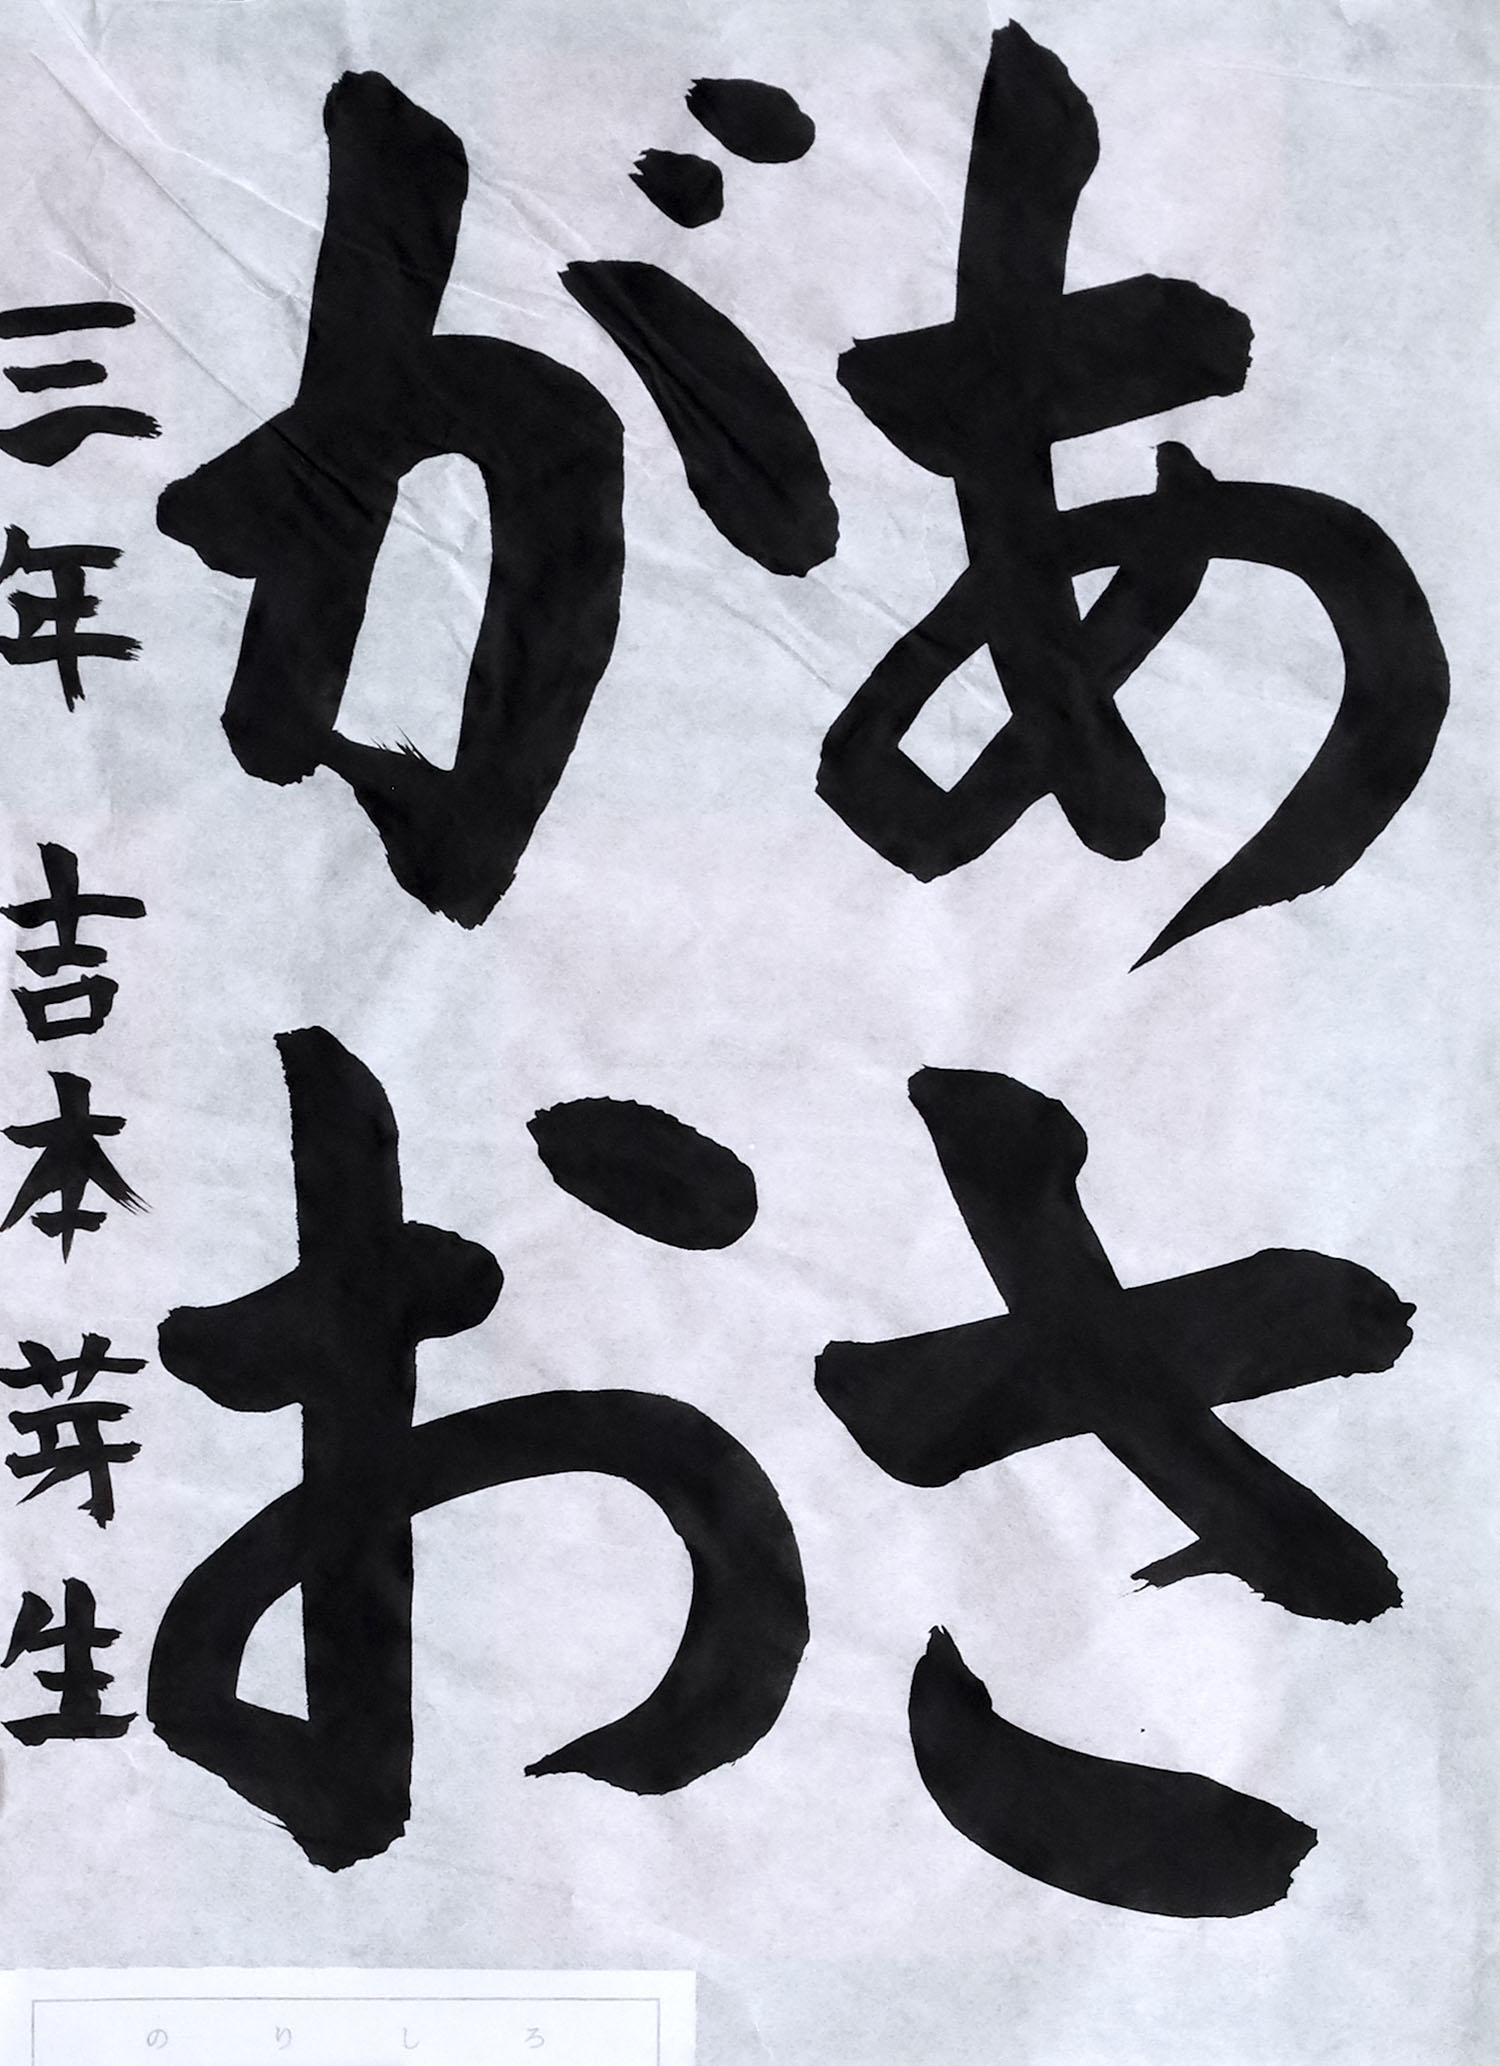 あさ
がお
三年 吉本 芽生
のりしろ